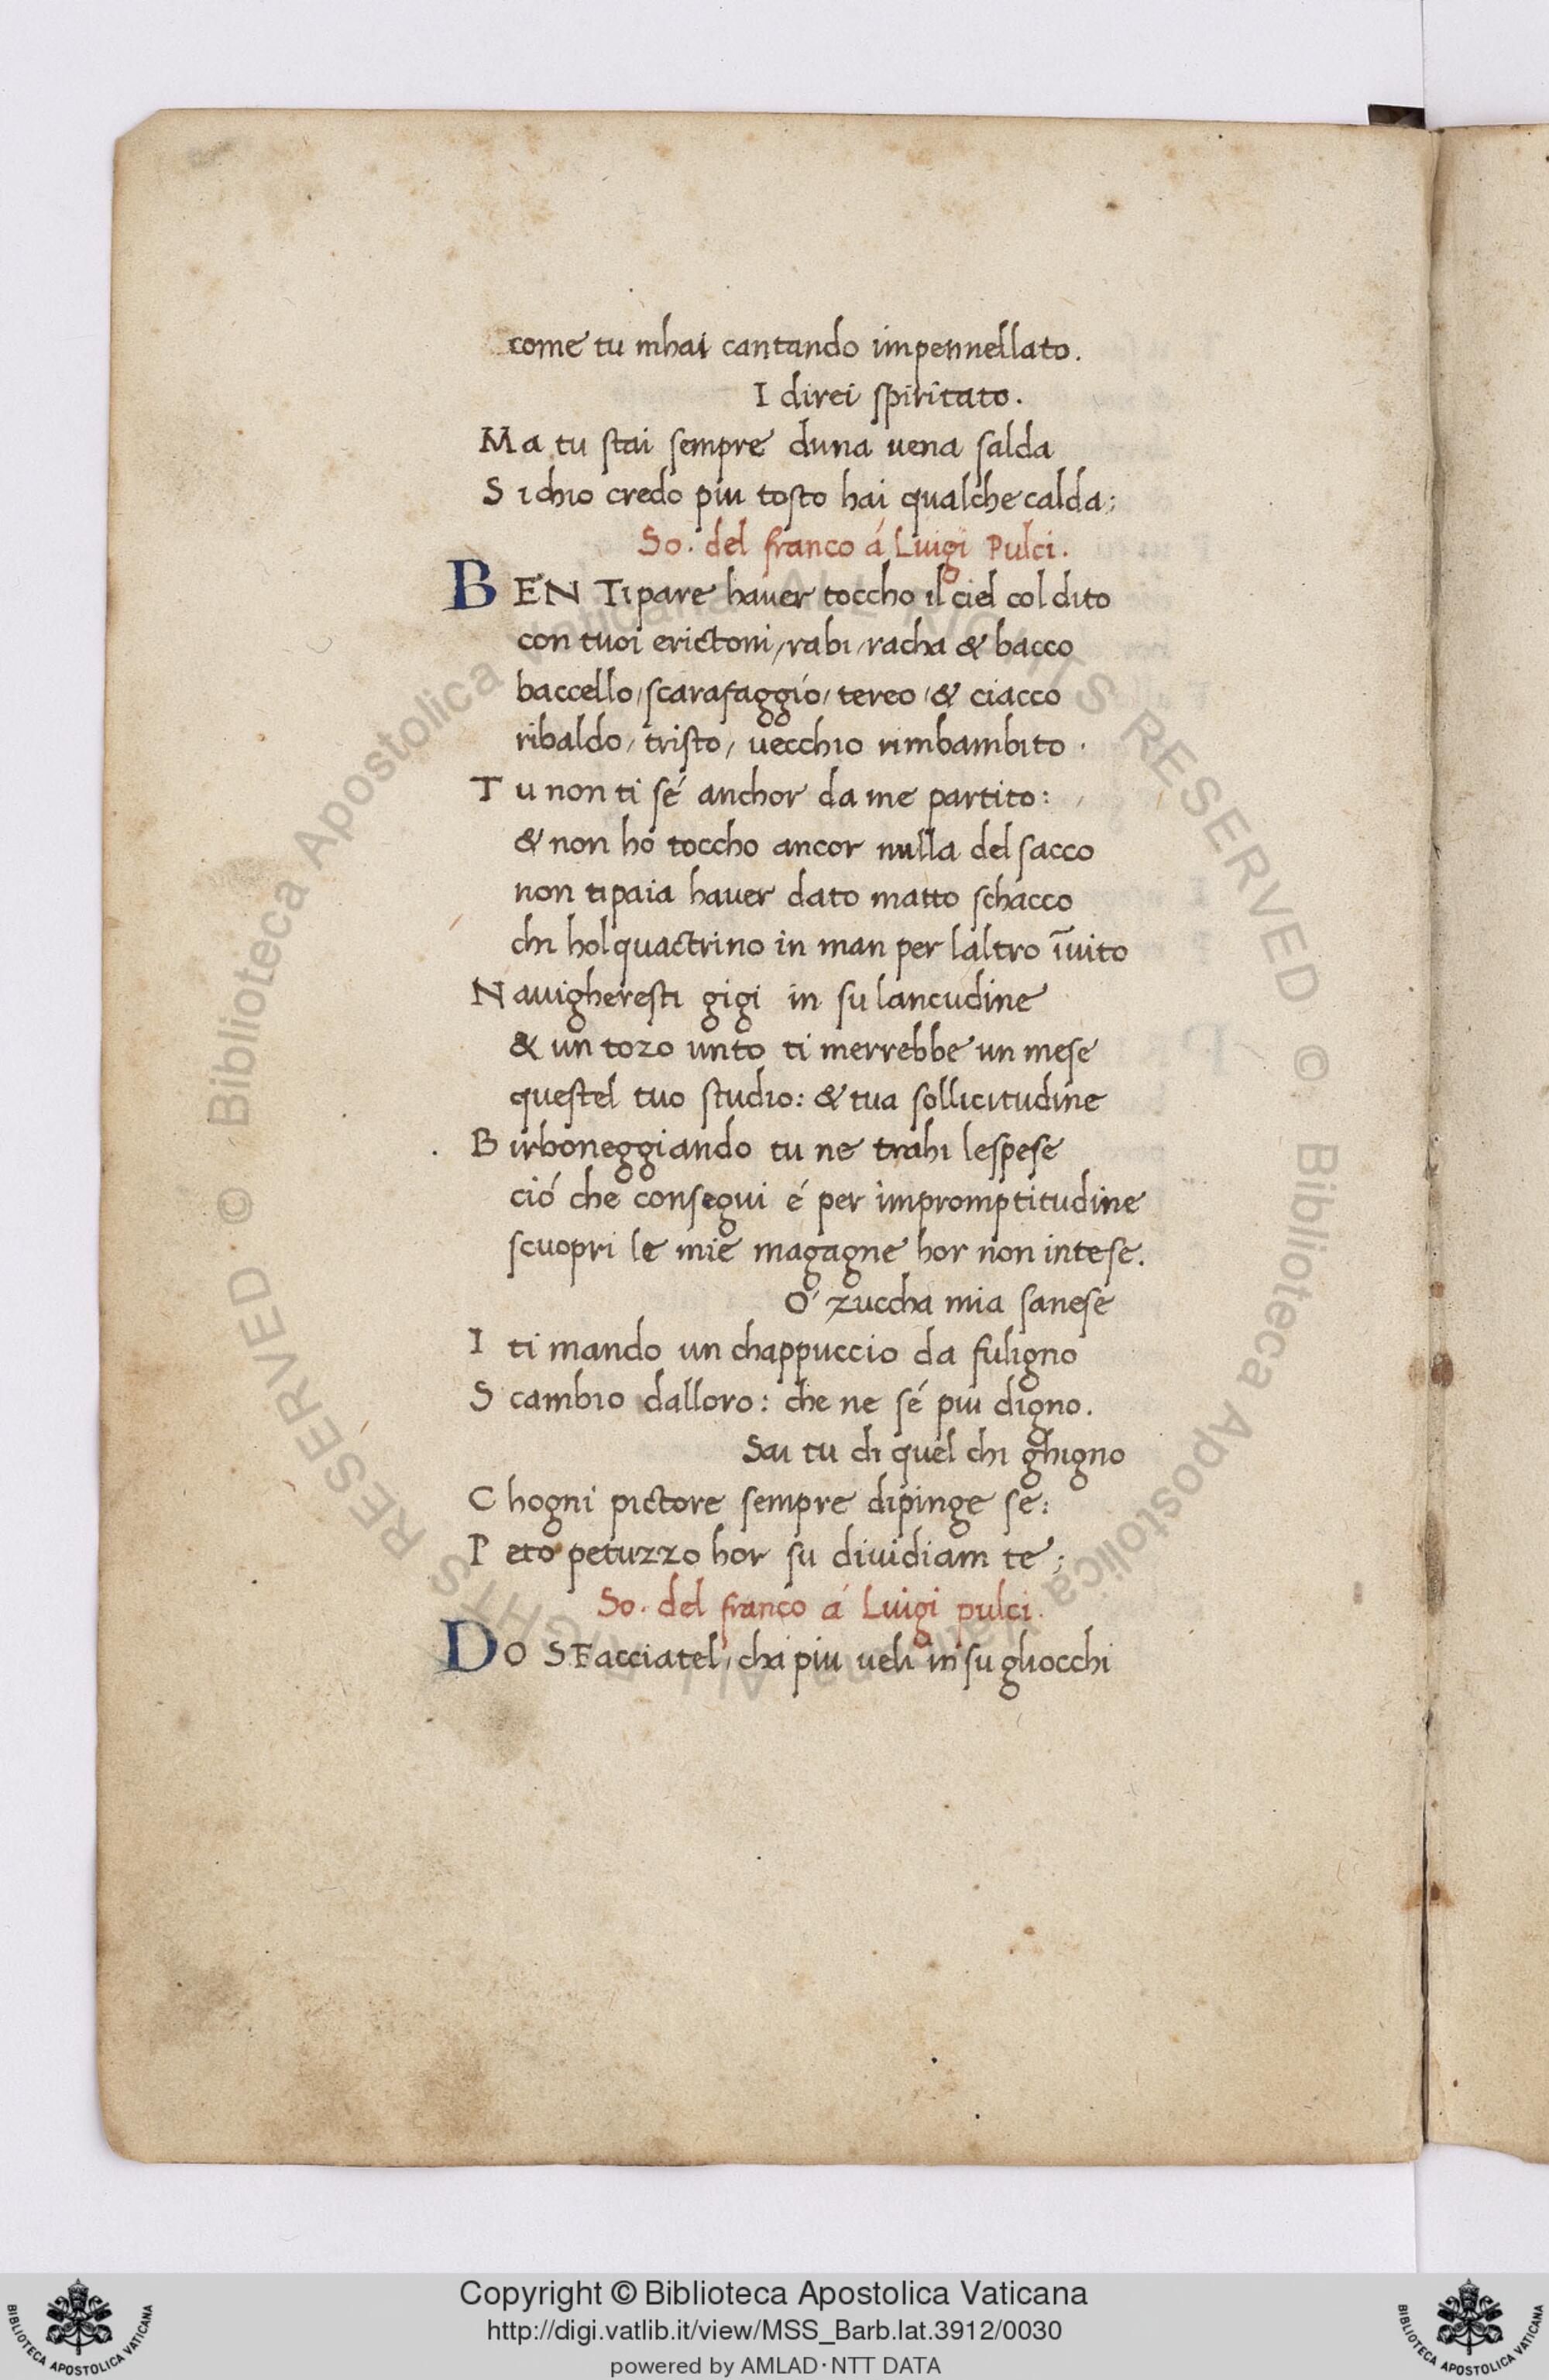 come tu mhai cantando impennellato.
I direi spiritato.
Ma tu stai sempre duna uena salda
Si chio credo piu tosto hai qualche calda;
So. del franco á Luigi Pulci.
BEN Ti pare hauer toccho il ciel col dito
con tuoi erictoni/rabi/racha & bacco
baccello/scarafaggio/tereo/& ciacco
ribaldo/tristo/uecchio rimbambito.
Tu non ti sé anchor da me partito:
& non hó toccho ancor nulla del sacco
non ti paia hauer dato matto schacco
chi hol quactrino in man per laltro īuito
Nauigheresti gigi in su lancudine
& un tozo unto ti merrebbe un mese
questel tuo studio: & tua sollicitudine
Birboneggiando tu ne trahi lespese
ció che consegui é per impromptitudine
scuopri le mie magagne hor non intese.
O' zuccha mia sanese
I ti mando un chappuccio da fuligno
Scambio dalloro: che ne sé piu digno.
Sai tu di quel chi ghigno
Chogni pictore sempre dipinge se:
Peto petuzzo hor su diuidiam te;
So. del franco á Luigi pulci.
DO SFacciatel/cha piu ueli in su gliocchi
© Biblioteca Apostolica Vaticana ALL RIGHTS RESERVED © Biblioteca Apostolica Vaticana ALL RIGHTS RESERVED
BIBLIOTECA APOSTOLICA VATICANA
Copyright © Biblioteca Apostolica Vaticana
http://digi.vatlib.it/view/MSS_Barb.lat.3912/0030
powered by AMLAD·NTT DATA
BIBLIOTECA APOSTOLICA VATICANA